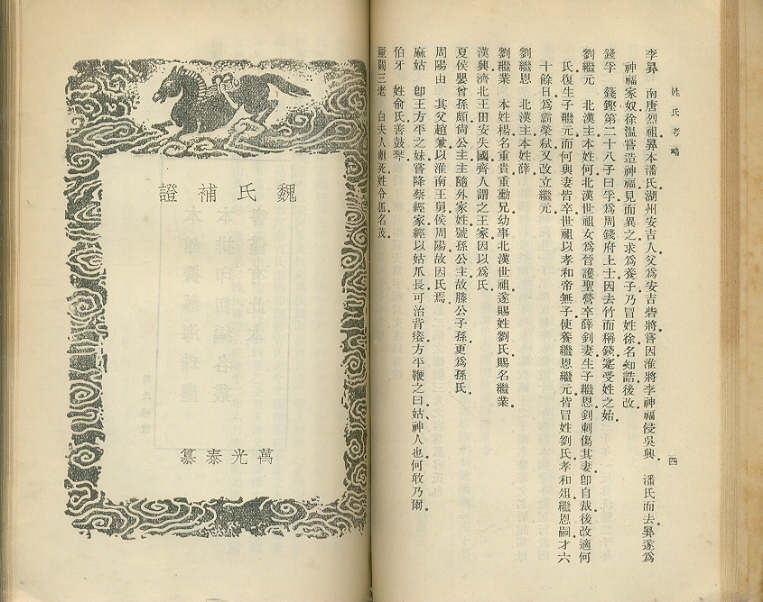 姓氏考略
四
李昪　南唐烈祖昪本潘氏湖州安吉人父爲安吉砦將嘗因淮將李神福侵吳興　潘氏而去昪遂爲
神福家奴徐溫嘗造神福見而異之求爲養子乃冒姓徐名知誥後改
錢孚　錢鏗第二十八子曰孚爲周錢府上士因去竹而稱錢寔受姓之始
劉繼元　北漢主本姓何北漢世祖女爲晉護聖營卒薛釗妻生子繼恩釗刺傷其妻卽自裁後改適何
氏復生子繼元而何與妻皆卒世祖以孝和帝無子使養繼恩繼元皆冒姓劉氏孝和殂繼恩嗣才六
十餘日爲霸榮弒又改立繼元
劉繼恩　北漢主本姓薛
劉繼業　本姓楊名重貴重勳兄幼事北漢世祖遂賜姓劉氏賜名繼業
漢興濟北王田安失國齊人謂之王家因以爲氏
夏侯嬰曾孫頗尙公主主隨外家姓號孫公主故滕公子孫更爲孫氏
周陽由　其父趙兼以淮南王舅侯周陽故因氏焉
麻姑　卽王方平之妹嘗降蔡經家經以姑爪長可治背癢方平鞭之曰姑神人也何敢乃爾
伯牙　姓俞氏善鼓琴
壺關三老　姓令狐名茂
魏氏補證
萬光泰纂